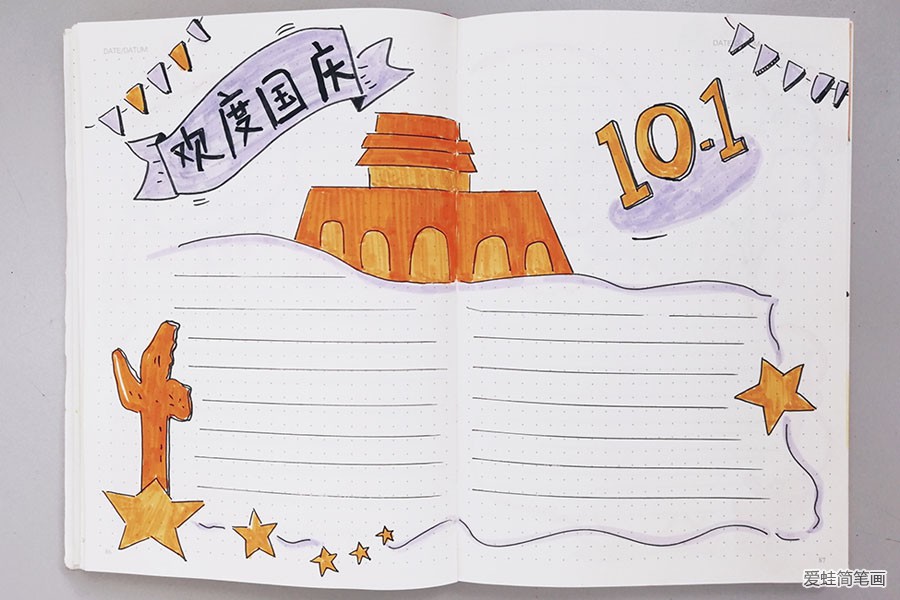 DATE/DATUM
欢度国庆
10.1
爱蛙简笔画